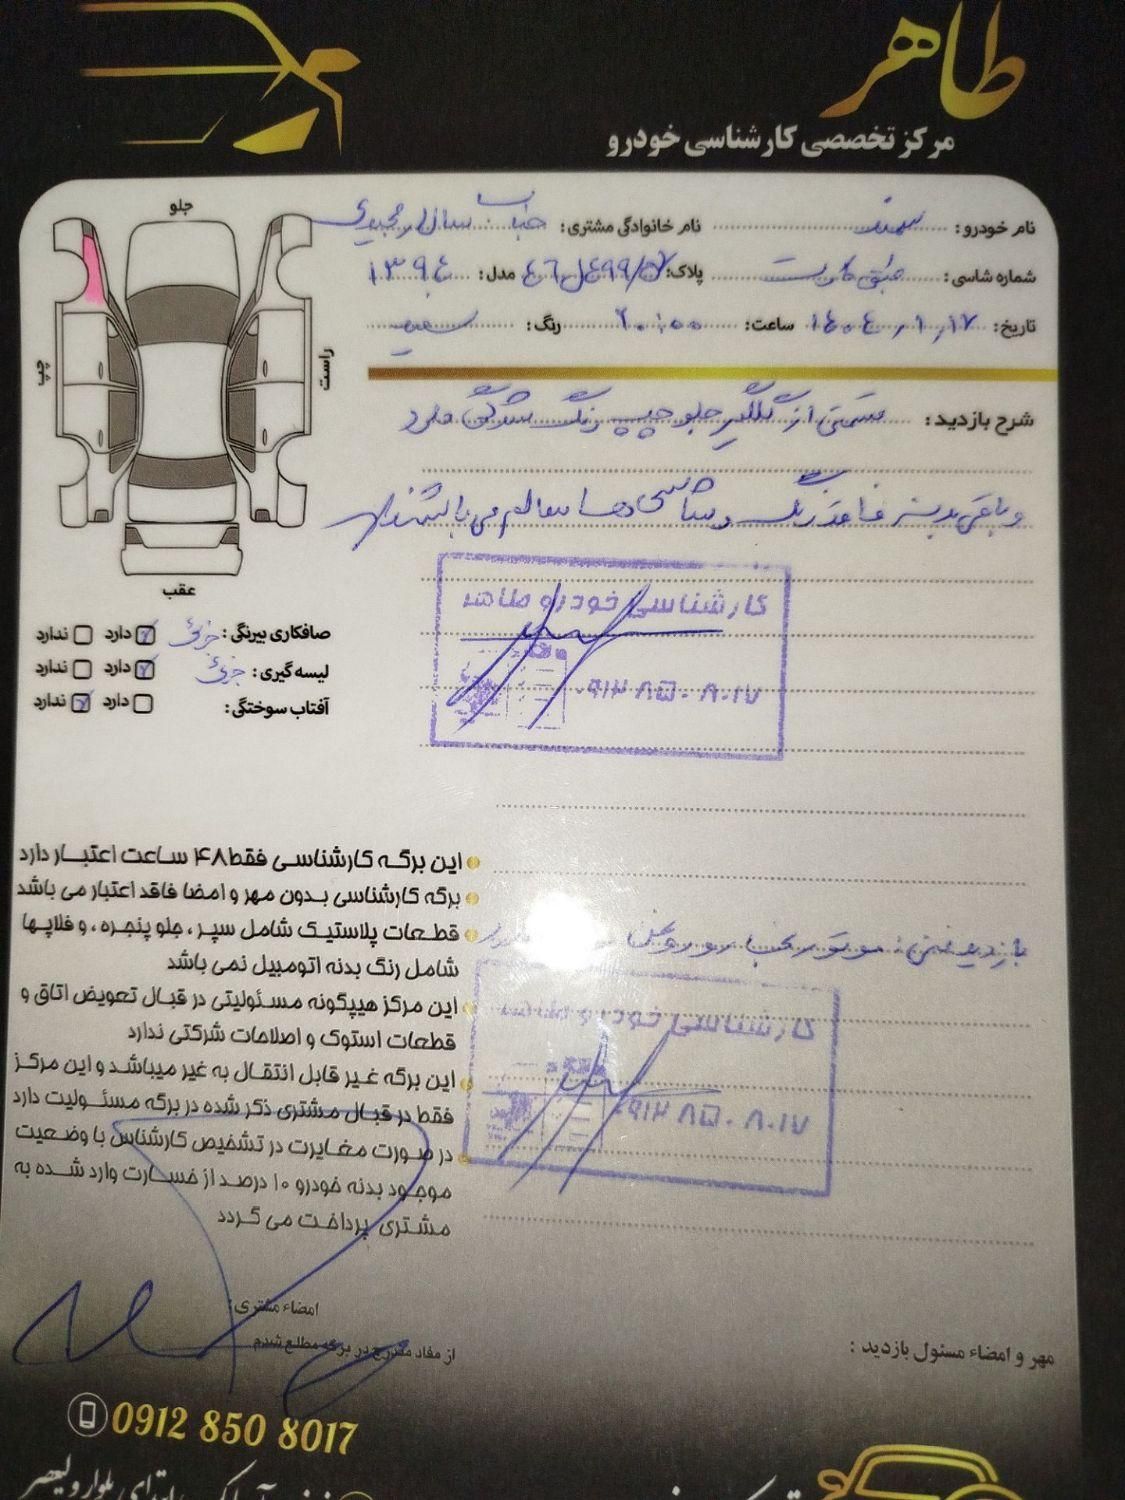 طاهر
مرکز تخصصی کارشناسی خودرو
نام خودرو: سمند نام خانوادگی مشتری: جناب سالار مجیدی
شماره شاسی: طبق کارت پلاک: مدل: ۱۳۹۴
تاریخ: ۱۴۰۴/۱/۱۷ ساعت: ۲۰:۰۰ رنگ: سفید
جلو
چپ
راست
عقب
شرح بازدید: قسمتی از گلگیر جلو چپ رنگ شدگی دارد
و باقی بدنه فاقد رنگ و شاسی ها سالم می باشند
کارشناسی خودرو طاهر
۰۹۱۲ ۸۵۰ ۸۰۱۷
صافکاری بیرنگی: جزئی دارد ندارد
لیسه گیری: جزئی دارد ندارد
آفتاب سوختگی: دارد ندارد
این برگه کارشناسی فقط ۴۸ ساعت اعتبار دارد
برگه کارشناسی بدون مهر و امضا فاقد اعتبار می باشد
قطعات پلاستیک شامل سپر ، جلو پنجره ، و فلاپها
شامل رنگ بدنه اتومبیل نمی باشد
این مرکز هیچگونه مسئولیتی در قبال تعویض اتاق و
قطعات استوک و اصلاحات شرکتی ندارد
این برگه غیر قابل انتقال به غیر میباشد و این مرکز
فقط در قبال مشتری ذکر شده در برگه مسئولیت دارد
در صورت مغایرت در تشخیص کارشناس با وضعیت
موجود بدنه خودرو ۱۰ درصد از خسارت وارد شده به
مشتری پرداخت می گردد
بازدید فنی: موتور
کارشناسی خودرو طاهر
۰۹۱۲ ۸۵۰ ۸۰۱۷
امضاء مشتری:
از مفاد مندرج در برگه مطلع شدم
مهر و امضاء مسئول بازدید :
0912 850 8017
ابتدای بلوار ولیعصر